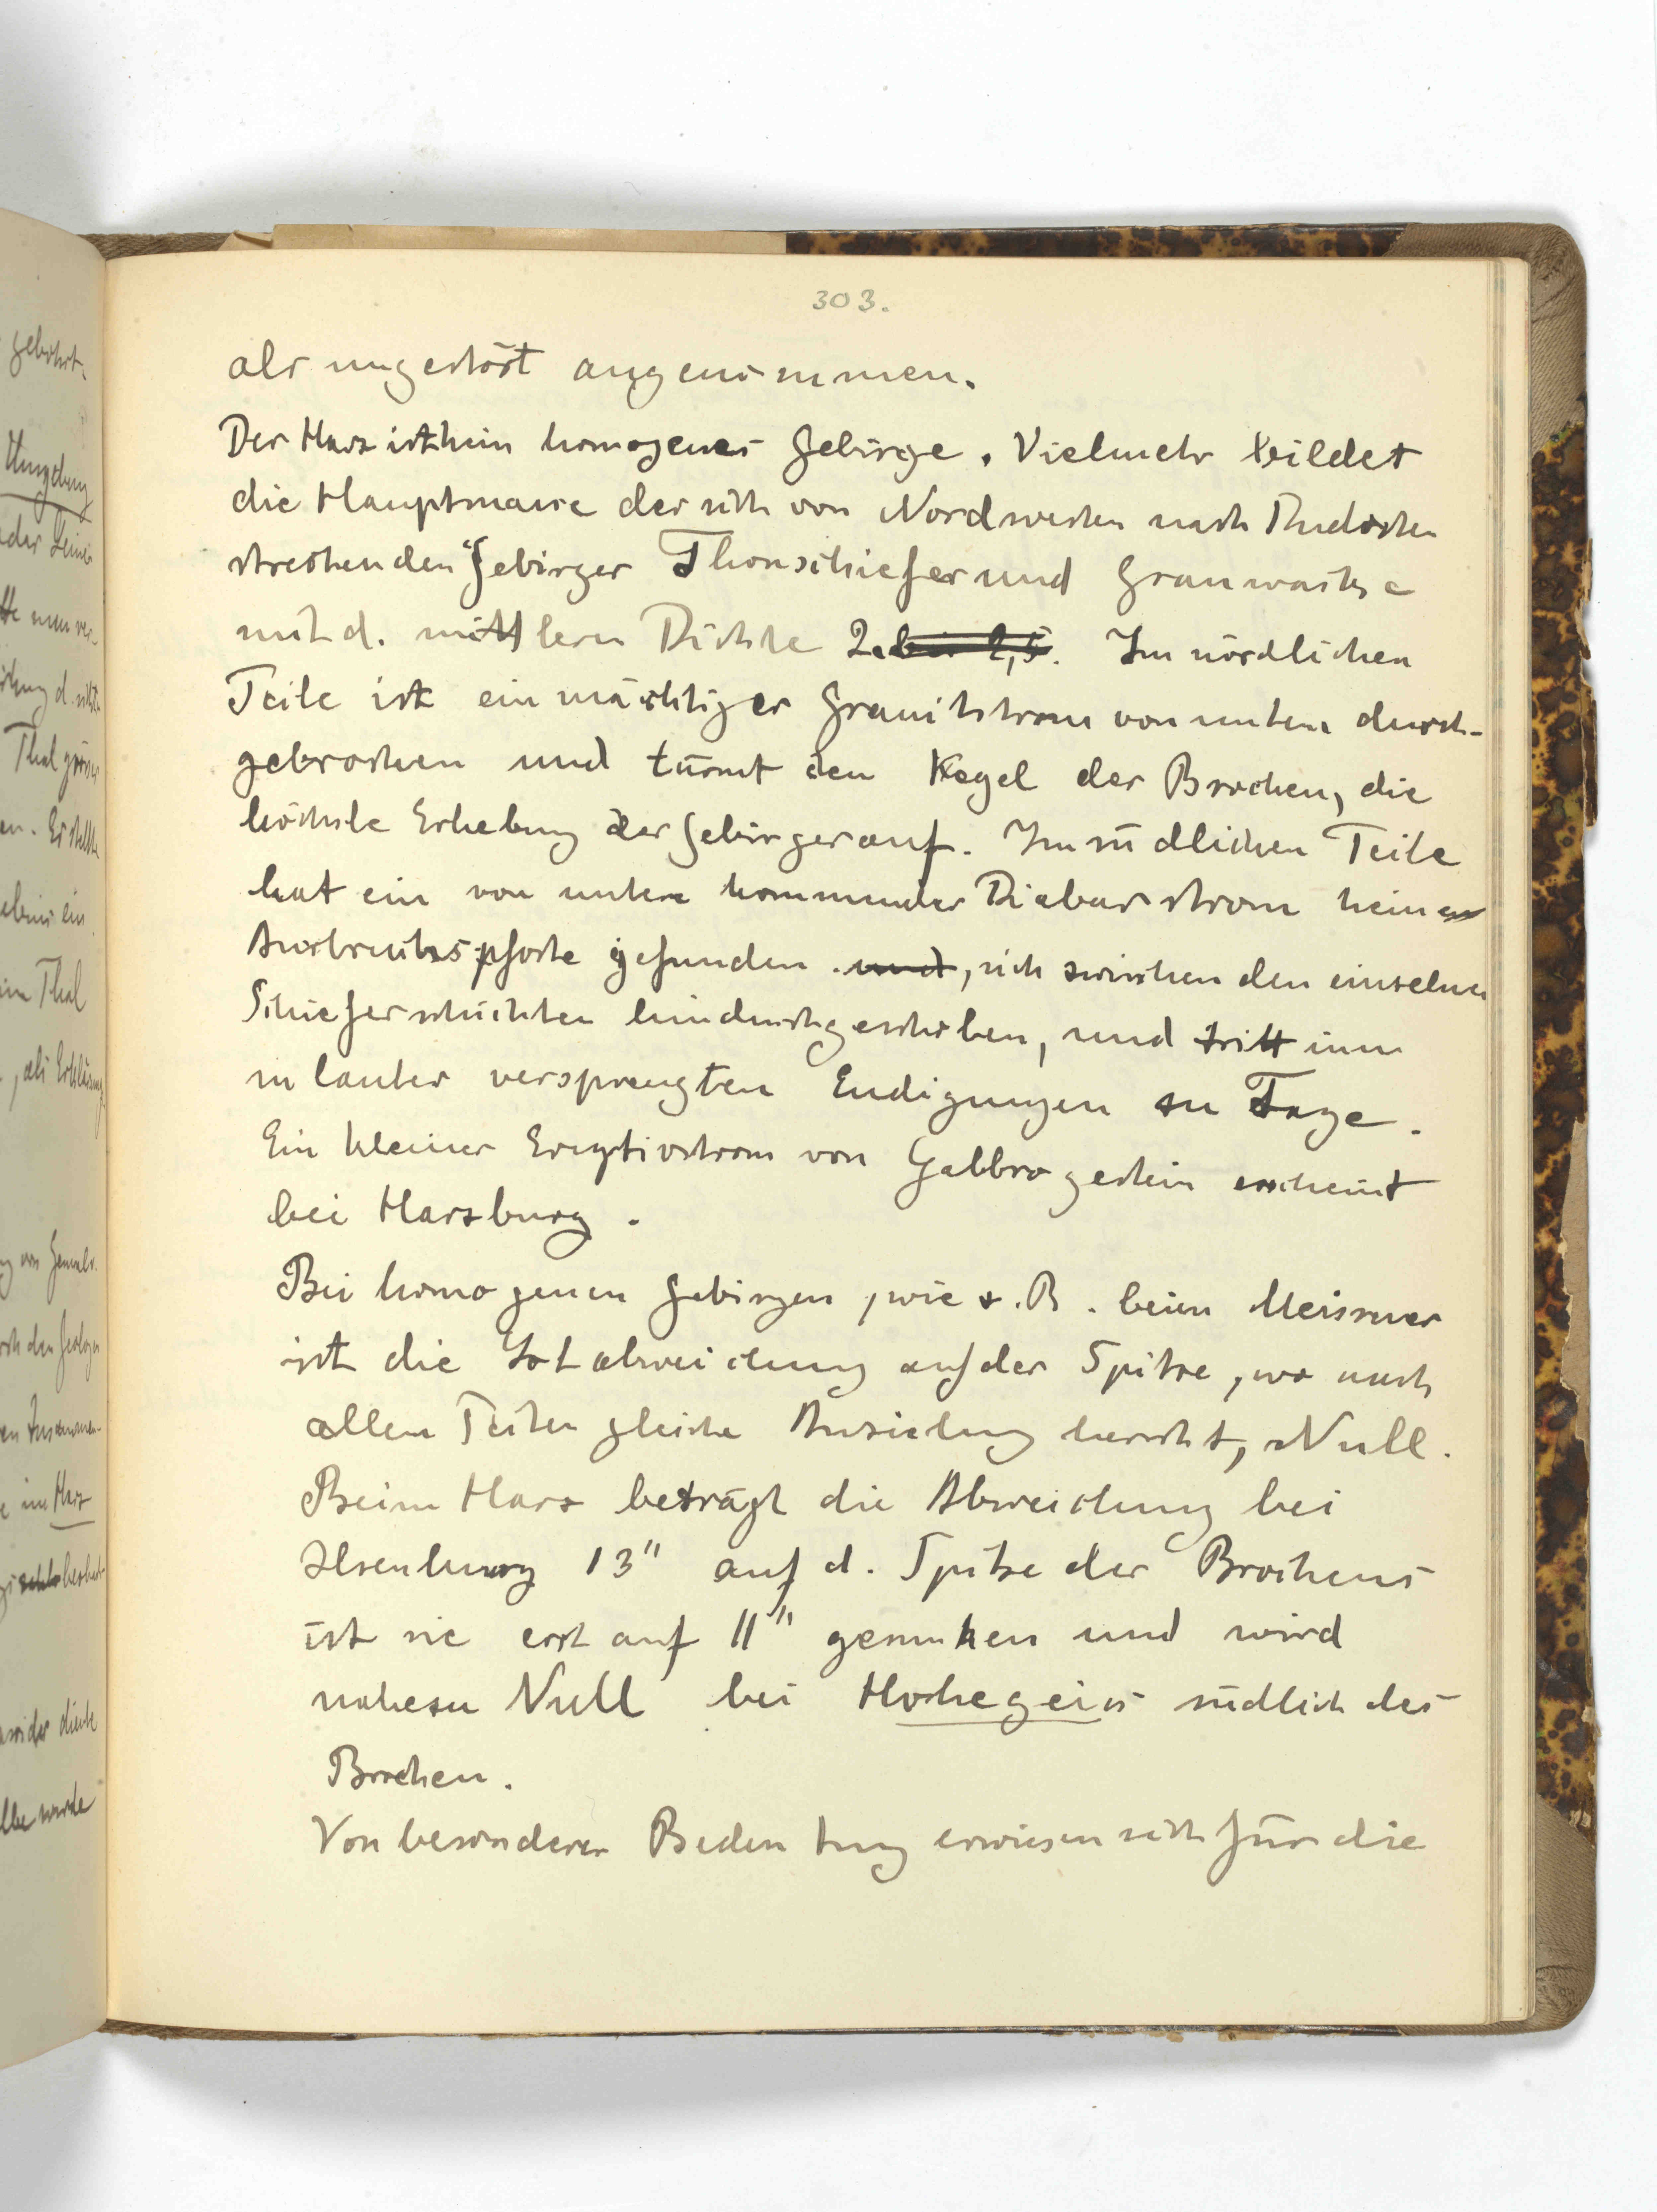 303.
als ungestört angenommen.
Der Harz ist kein homogenes Gebirge. Vielmehr bildet
die Hauptmasse des sich von Nordwesten nach Südosten
streckenden Gebirges Thonschiefer und Grauwacke
mit d. mittlern Dichte 2. bis 2,5. Im nördlichen
Teile ist ein mächtiger Granitstrom von unten durch-
gebrochen und türmt den Kegel des Brocken, die
höchste Erhebung des Gebirges auf. Im südlichen Teile
hat ein von unten kommender Diabasstrom keine
Ausbruchspforte gefunden und, sich zwischen den einzelnen
Schieferschichten hindurchgeschoben, und tritt nun
in lauter versprengten Endigungen zu Tage.
Ein kleiner Eruptivstrom von Gabbrogestein erscheint
bei Harzburg.
Bei homogenen Gebirgen, wie z. B. beim Meissner
ist die Lotabweichung auf der Spitze, wo nach
allen Seiten gleiche Anziehung herrscht, Null.
Beim Harz beträgt die Abweichung bei
Ilsenburg 13" auf d. Spitze des Brockens
ist sie erst auf 11" gesunken und wird
nahezu Null bei Hohegeiss südlich des
Brocken.
Von besonderer Bedeutung erwiesen sich für die